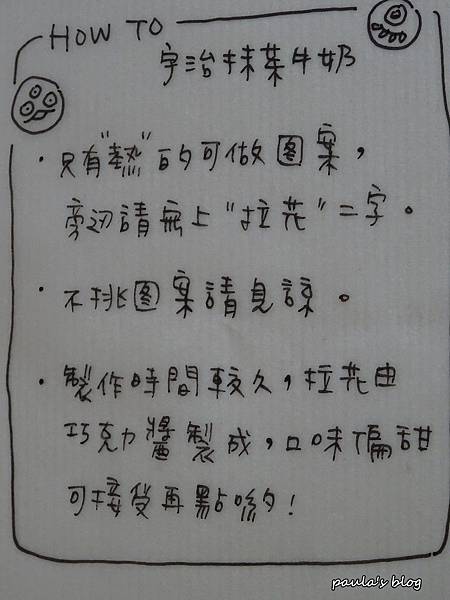 HOW TO
宇治抹茶牛奶
・只有"熱"的可做图案，
旁边請寫上"拉花"二字。
・不挑图案請見諒。
・製作時間較久，拉花由
巧克力醬製成，口味偏甜
可接受再點喲！
paula's blog